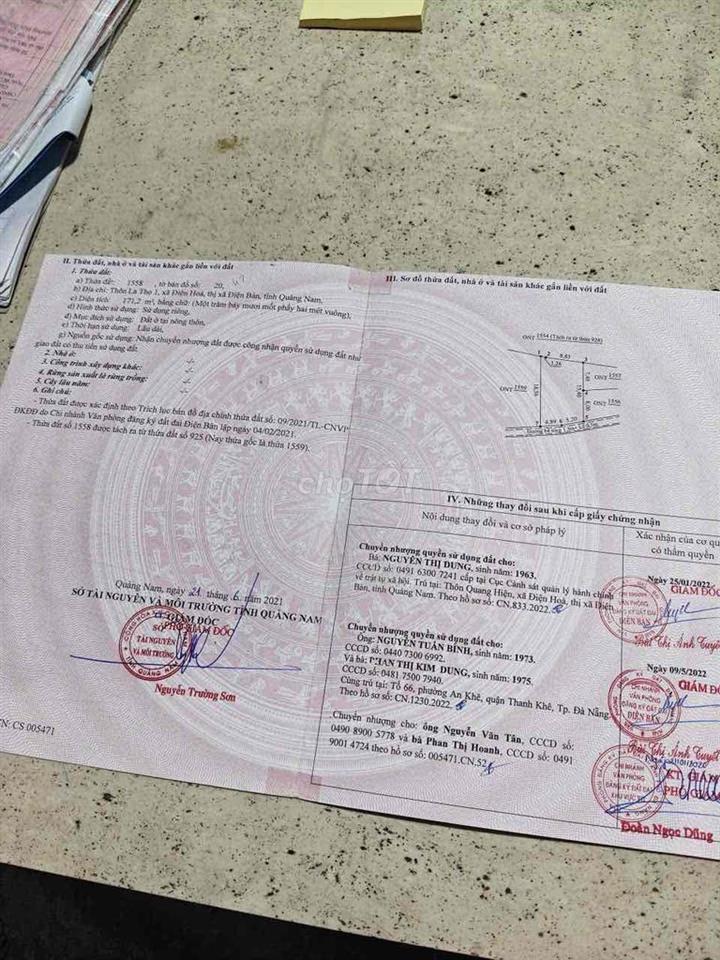 II. Thửa đất, nhà ở và tài sản khác gắn liền với đất
1. Thửa đất:
a) Thửa đất: 1558 , tờ bản đồ số: 20,
b) Địa chỉ: Thôn La Thọ 1, xã Điện Hoà, thị xã Điện Bàn, tỉnh Quảng Nam,
c) Diện tích: 171,2 m², bằng chữ: (Một trăm bảy mươi mốt phẩy hai mét vuông),
d) Hình thức sử dụng: Sử dụng riêng,
đ) Mục đích sử dụng: Đất ở tại nông thôn,
e) Thời hạn sử dụng: Lâu dài,
g) Nguồn gốc sử dụng: Nhận chuyển nhượng đất được công nhận quyền sử dụng đất như
giao đất có thu tiền sử dụng đất.
2. Nhà ở: -/-
3. Công trình xây dựng khác: -/-
4. Rừng sản xuất là rừng trồng: -/-
5. Cây lâu năm: -/-
6. Ghi chú:
- Thửa đất được xác định theo Trích lục bản đồ địa chính thửa đất số: 09/2021/TL-CNVP
ĐKĐĐ do Chi nhánh Văn phòng đăng ký đất đai Điện Bàn lập ngày 04/02/2021.
- Thửa đất số 1558 được tách ra từ thửa đất số 925 (Nay thửa gốc là thửa 1559).
Quảng Nam, ngày 21 tháng 6 năm 2021
SỞ TÀI NGUYÊN VÀ MÔI TRƯỜNG TỈNH QUẢNG NAM
GIÁM ĐỐC
PHÓ GIÁM ĐỐC
SỞ
TÀI NGUYÊN
VÀ MÔI TRƯỜNG
TỈNH QUẢNG NAM
Nguyễn Trường Sơn
CN: CS 005471
III. Sơ đồ thửa đất, nhà ở và tài sản khác gắn liền với đất
ONT 1554 (Tách ra từ thửa 928)
1 2 8.83 3
1.26
ONT 1557
ONT 1559
ONT 1556
4.89 5.20
choTOT
IV. Những thay đổi sau khi cấp giấy chứng nhận
Nội dung thay đổi và cơ sở pháp lý
Xác nhận của cơ qu
có thẩm quyền
Chuyển nhượng quyền sử dụng đất cho:
Bà: NGUYỄN THỊ DUNG, sinh năm: 1963.
CCCD số: 0491 6300 7241 cấp tại Cục Cảnh sát quản lý hành chính
về trật tự xã hội. Trú tại: Thôn Quang Hiện, xã Điện Hoà, thị xã Điện
Bàn, tỉnh Quảng Nam. Theo hồ sơ số: CN.833.2022.
Ngày 25/01/2022
GIÁM ĐỐC
CHI NHÁNH
VĂN PHÒNG
ĐĂNG KÝ ĐẤT ĐAI
ĐIỆN BÀN
Bùi Thị Ánh Tuyết
Chuyển nhượng quyền sử dụng đất cho:
Ông: NGUYỄN TUẤN BÌNH, sinh năm: 1973.
CCCD số: 0440 7300 6992.
Và bà: PHAN THỊ KIM DUNG, sinh năm: 1975.
CCCD số: 0481 7500 7940.
Cùng trú tại: Tổ 66, phường An Khê, quận Thanh Khê, Tp. Đà Nẵng.
Theo hồ sơ số: CN.1230.2022.
Ngày 09/5/2022
GIÁM ĐỐ
CHI NHÁNH
VĂN PHÒNG
ĐĂNG KÝ ĐẤT Đ
ĐIỆN BÀN
Bùi Thị Ánh Tuyết
Chuyển nhượng cho: ông Nguyễn Văn Tân, CCCD số:
0490 8900 5778 và bà Phan Thị Hoanh, CCCD số: 0491
9001 4724 theo hồ sơ số: 005471.CN.52
KT. GIÁM
PHÓ GI
CHI NHÁNH
VĂN PHÒNG
ĐĂNG KÝ ĐẤT ĐAI
KHU VỰC
Đoàn Ngọc Dũng